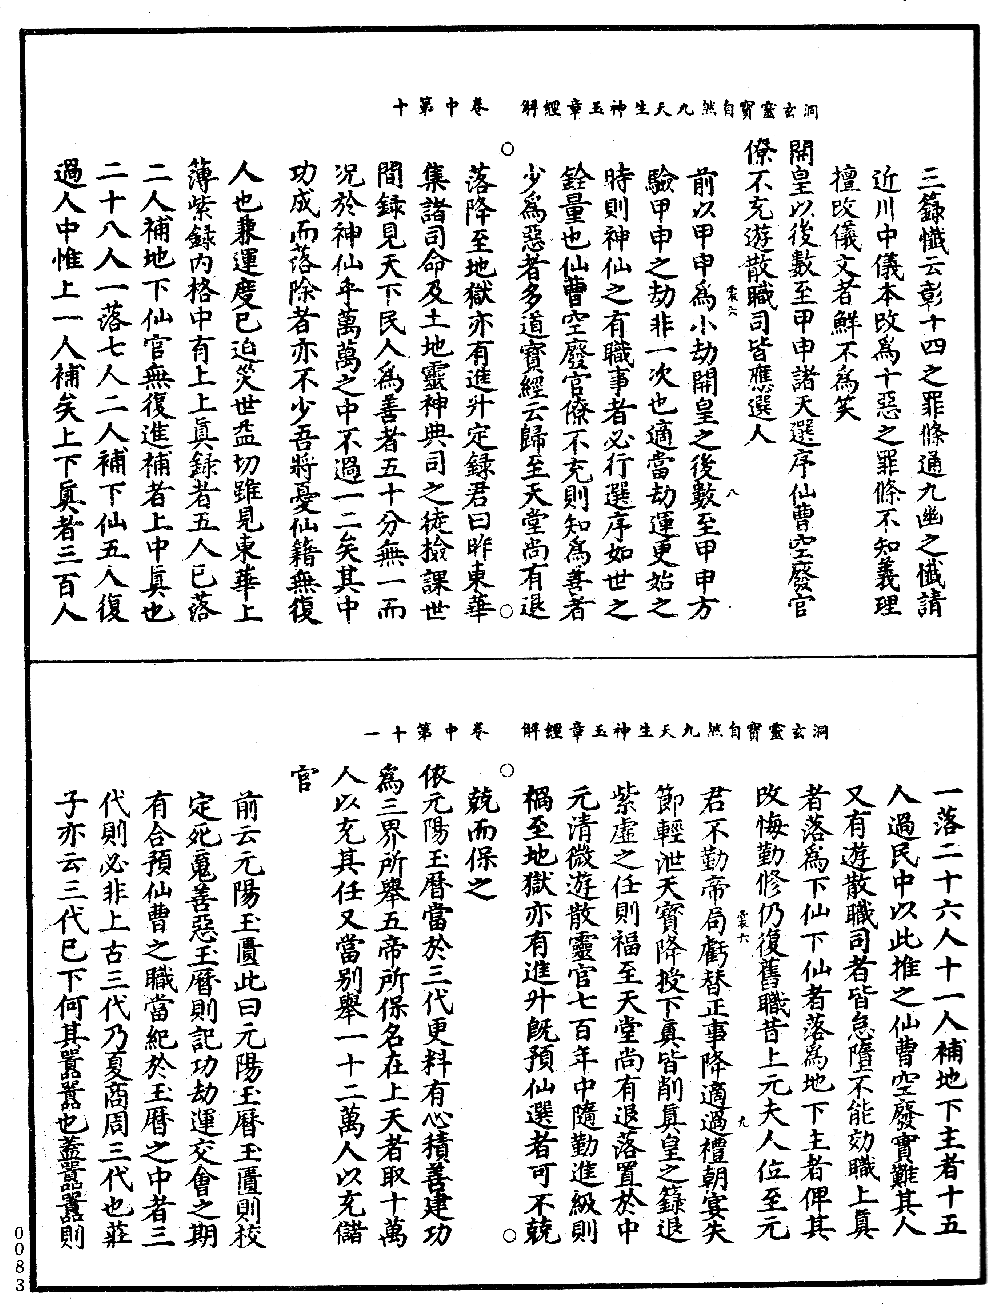 洞玄靈寶自然九天生神玉章經解　卷中第十
三籙懺云彰十四之罪條通九幽之懺請
近川中儀本改爲十惡之罪條不知義理
擅改儀文者鮮不爲笑
開皇以後數至甲申諸天選序仙曹空廢官
僚不充遊散職司皆應選人
前以甲申爲小劫開皇之後數至甲申方
驗甲申之劫非一次也適當劫運更始之
時則神仙之有職事者必行選序如世之
銓量也仙曹空廢官僚不充則知爲善者
少爲惡者多道寶經云歸至天堂尚有退
落降至地獄亦有進升定録君曰昨東華
集諸司命及土地靈神典司之徒撿課世
間録見天下民人爲善者五十分無一而
况於神仙乎萬萬之中不過一二矣其中
功成而落除者亦不少吾將憂仙籍無復
人也兼運度已迫災世益切雖見東華上
薄紫録內格中有上上眞録者五人已落
二人補地下仙官無復進補者上中眞也
二十八人一落七人二人補下仙五人復
過人中惟上一人補矣上下眞者三百人
八
洞玄靈寶自然九天生神玉章經解　卷中第十一
一落二十六人十一人補地下主者十五
人過民中以此推之仙曹空廢實難其人
又有遊散職司者皆怠墮不能効職上眞
者落爲下仙下仙者落爲地下主者俾其
改悔勤修仍復舊職昔上元夫人位至元
君不勤帝局虧替正事降適過禮朝宴失
節輕泄天寶降授下眞皆削眞皇之籙退
紫虛之任則福至天堂尚有退落置於中
元清微遊散靈官七百年中隨勤進級則
禍至地獄亦有進升旣預仙選者可不兢
兢而保之
依元陽玉曆當於三代更料有心積善建功
爲三界所舉五帝所保名在上天者取十萬
人以充其任又當别舉一十二萬人以充儲
官
前云元陽玉匱此曰元陽玉曆玉匱則校
定死魂善惡玉曆則記功劫運交會之期
有合預仙曹之職當紀於玉曆之中者三
代則必非上古三代乃夏商周三代也莊
子亦云三代已下何其囂囂也蓋囂囂則
九
0083